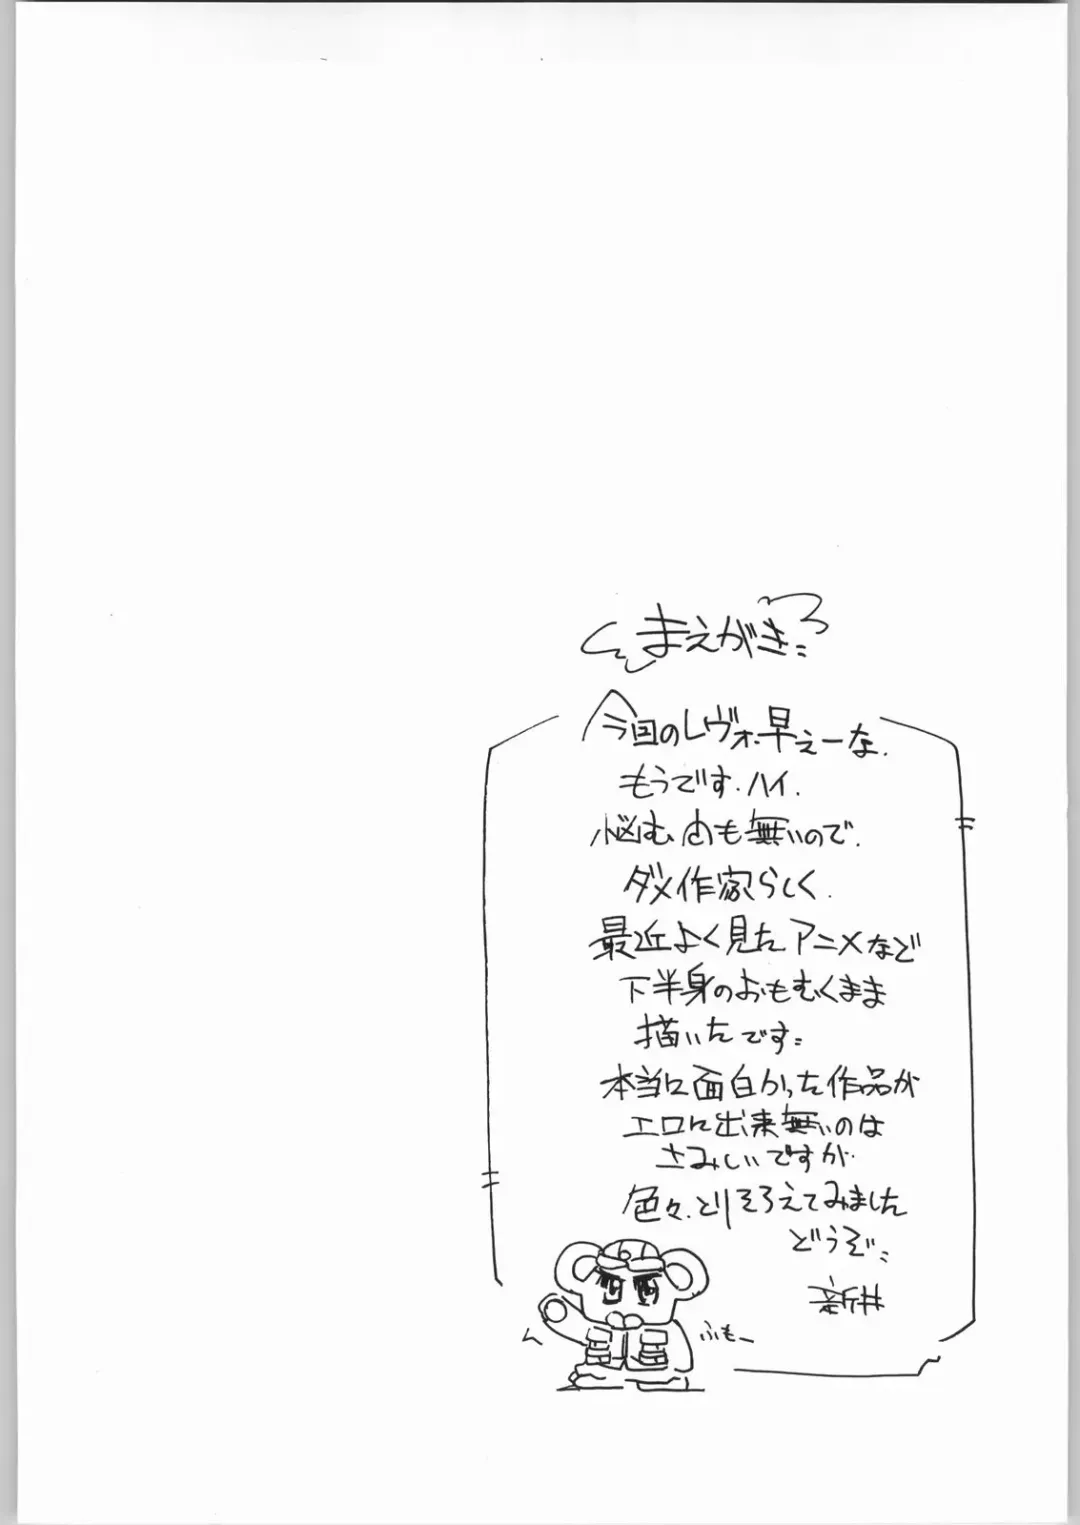 まえがき
今回のレヴォ早えーな.
もうです.ハイ.
悩む間も無いので.
ダメ作家らしく.
最近よく見たアニメなど
下半身のおもむくまま
描いたです
本当に面白かった作品が
エロに出来無いのは
さみしいですが
色々、とりそろえてみました
どうぞ
新井
ふもー